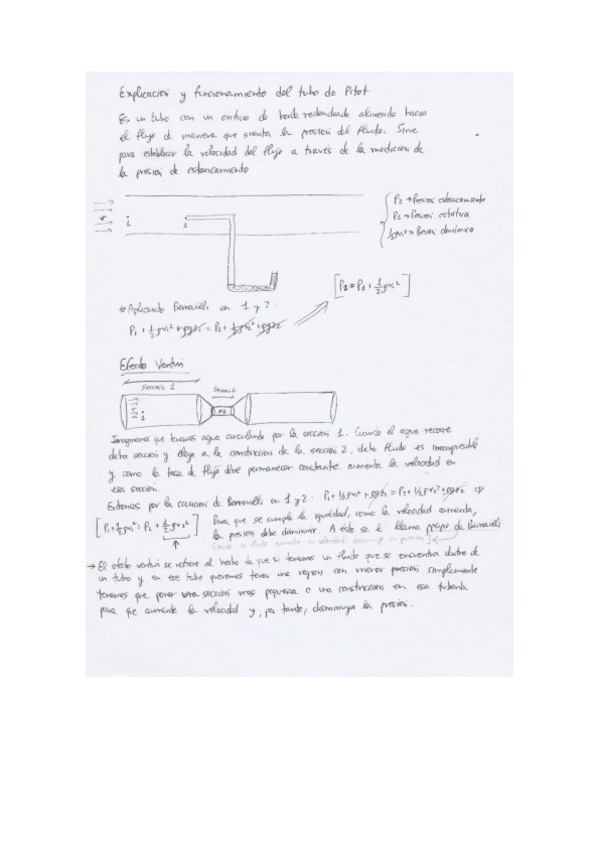 Explicación y funcionamiento del tubo de Pitot
Es un tubo con un orificio de borde redondeado alineado hacia
el flujo de manera que sienta la presión del fluido. Sirve
para establecer la velocidad del flujo a través de la medición de
la presión de estancamiento
P2 → Presión estancamiento
P1 → Presión estática
½ρv₁² → Presión dinámica
1 2
[P2 = P1 + ½ρv₁²]
* Aplicando Bernoulli en 1 y 2:
P1 + ½ρv₁² + ρgz₁ = P2 + ½ρv₂² + ρgz₂
Efecto Venturi
Sección 1 Sección 2
Imaginemos que tenemos agua circulando por la sección 1. Cuando el agua recorre
dicha sección y llega a la constricción de la sección 2, dicho fluido es incompresible
y como la tasa de flujo debe permanecer constante aumenta la velocidad en
esa sección.
Entonces por la ecuación de Bernoulli en 1 y 2: P1 + ½ρv₁² + ρgz₁ = P2 + ½ρv₂² + ρgz₂ ⇒
[P1 + ½ρv₁² = P2 + ½ρv₂²] Para que se cumpla la igualdad, como la velocidad aumenta,
la presión debe disminuir. A esto se le llama ppio de Bernoulli
fluido aumenta su velocidad, disminuye su presión]
→ El efecto venturi se refiere al hecho de que si tenemos un fluido que se encuentra dentro de
un tubo y en ese tubo queremos tener una región con menor presión simplemente
tenemos que poner una sección más pequeña o una constricción en esa tubería
para que aumente la velocidad y, por tanto, disminuya la presión.